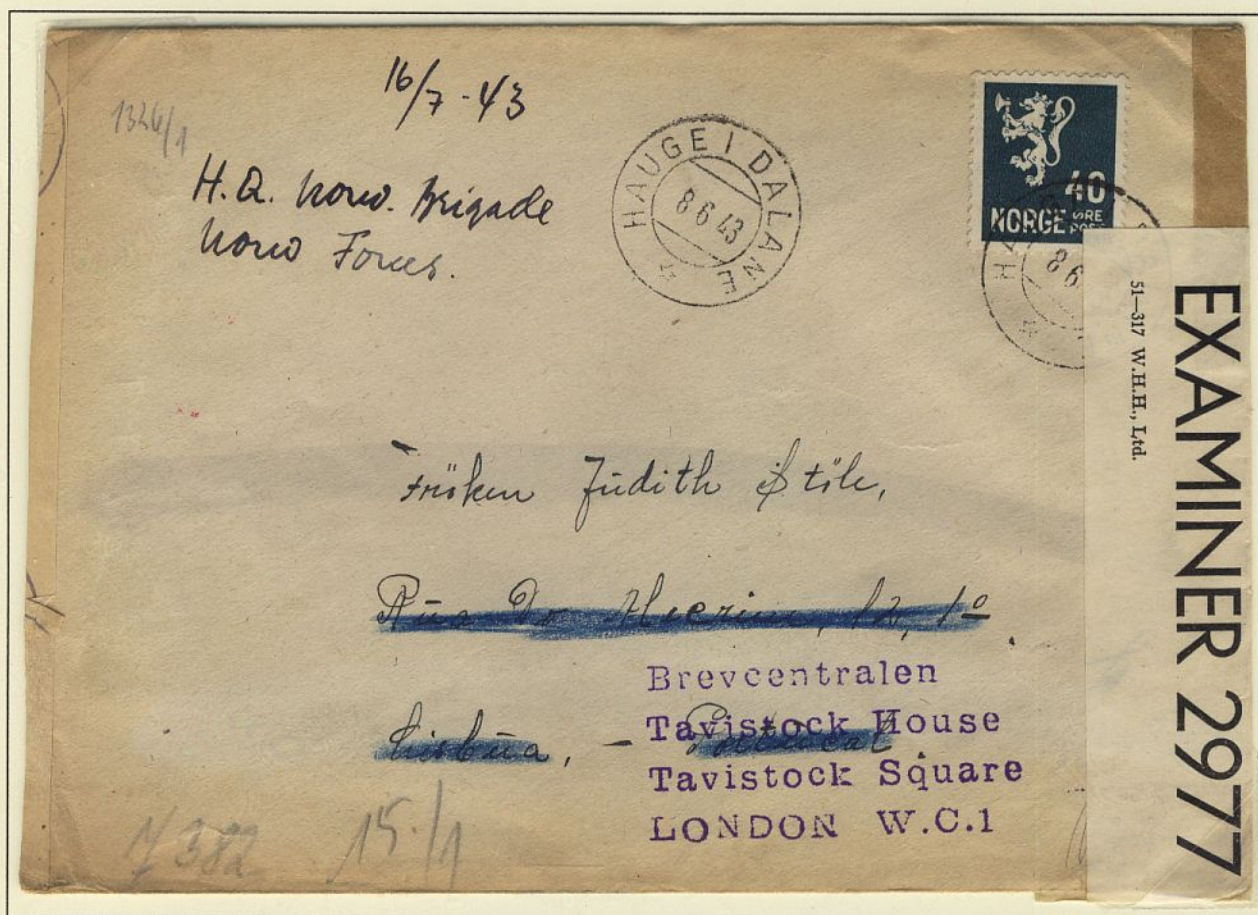 16/7-43
1326/1
H.Q. Norw. Brigade
Norw Forces.
HAUGE I DALANE
8 6 43
40
NORGE ØRE
POST
HA
8 6
51—317 W.H.H., Ltd.
EXAMINER 2977
Fröken Judith
Rua Dr 12, 1º
Lisbûa, - Portugal.
Brevcentralen
Tavistock House
Tavistock Square
LONDON W.C.1
7382
15/1